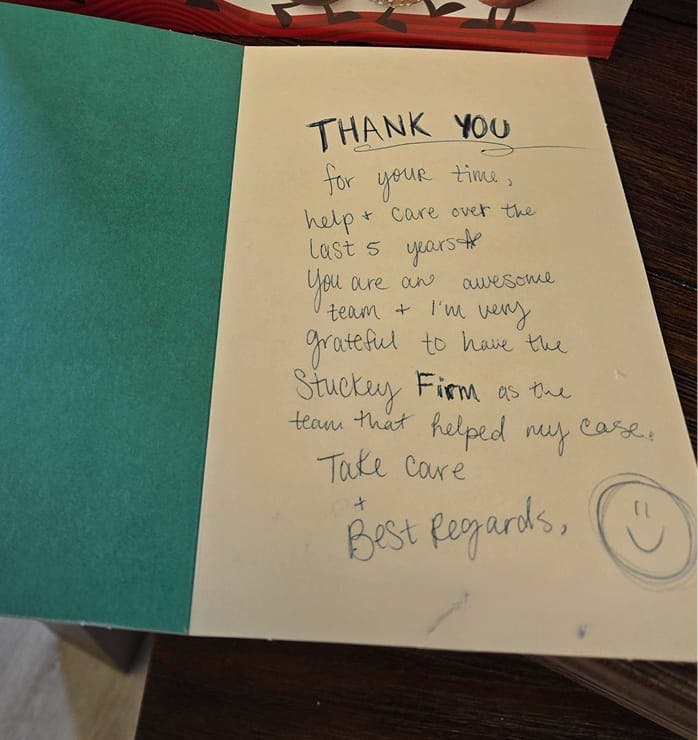 THANK YOU
for your time,
help + care over the
last 5 years
You are an awesome
team + I'm very
grateful to have the
Stuckey Firm as the
team that helped my case.
Take care
+
Best Regards,